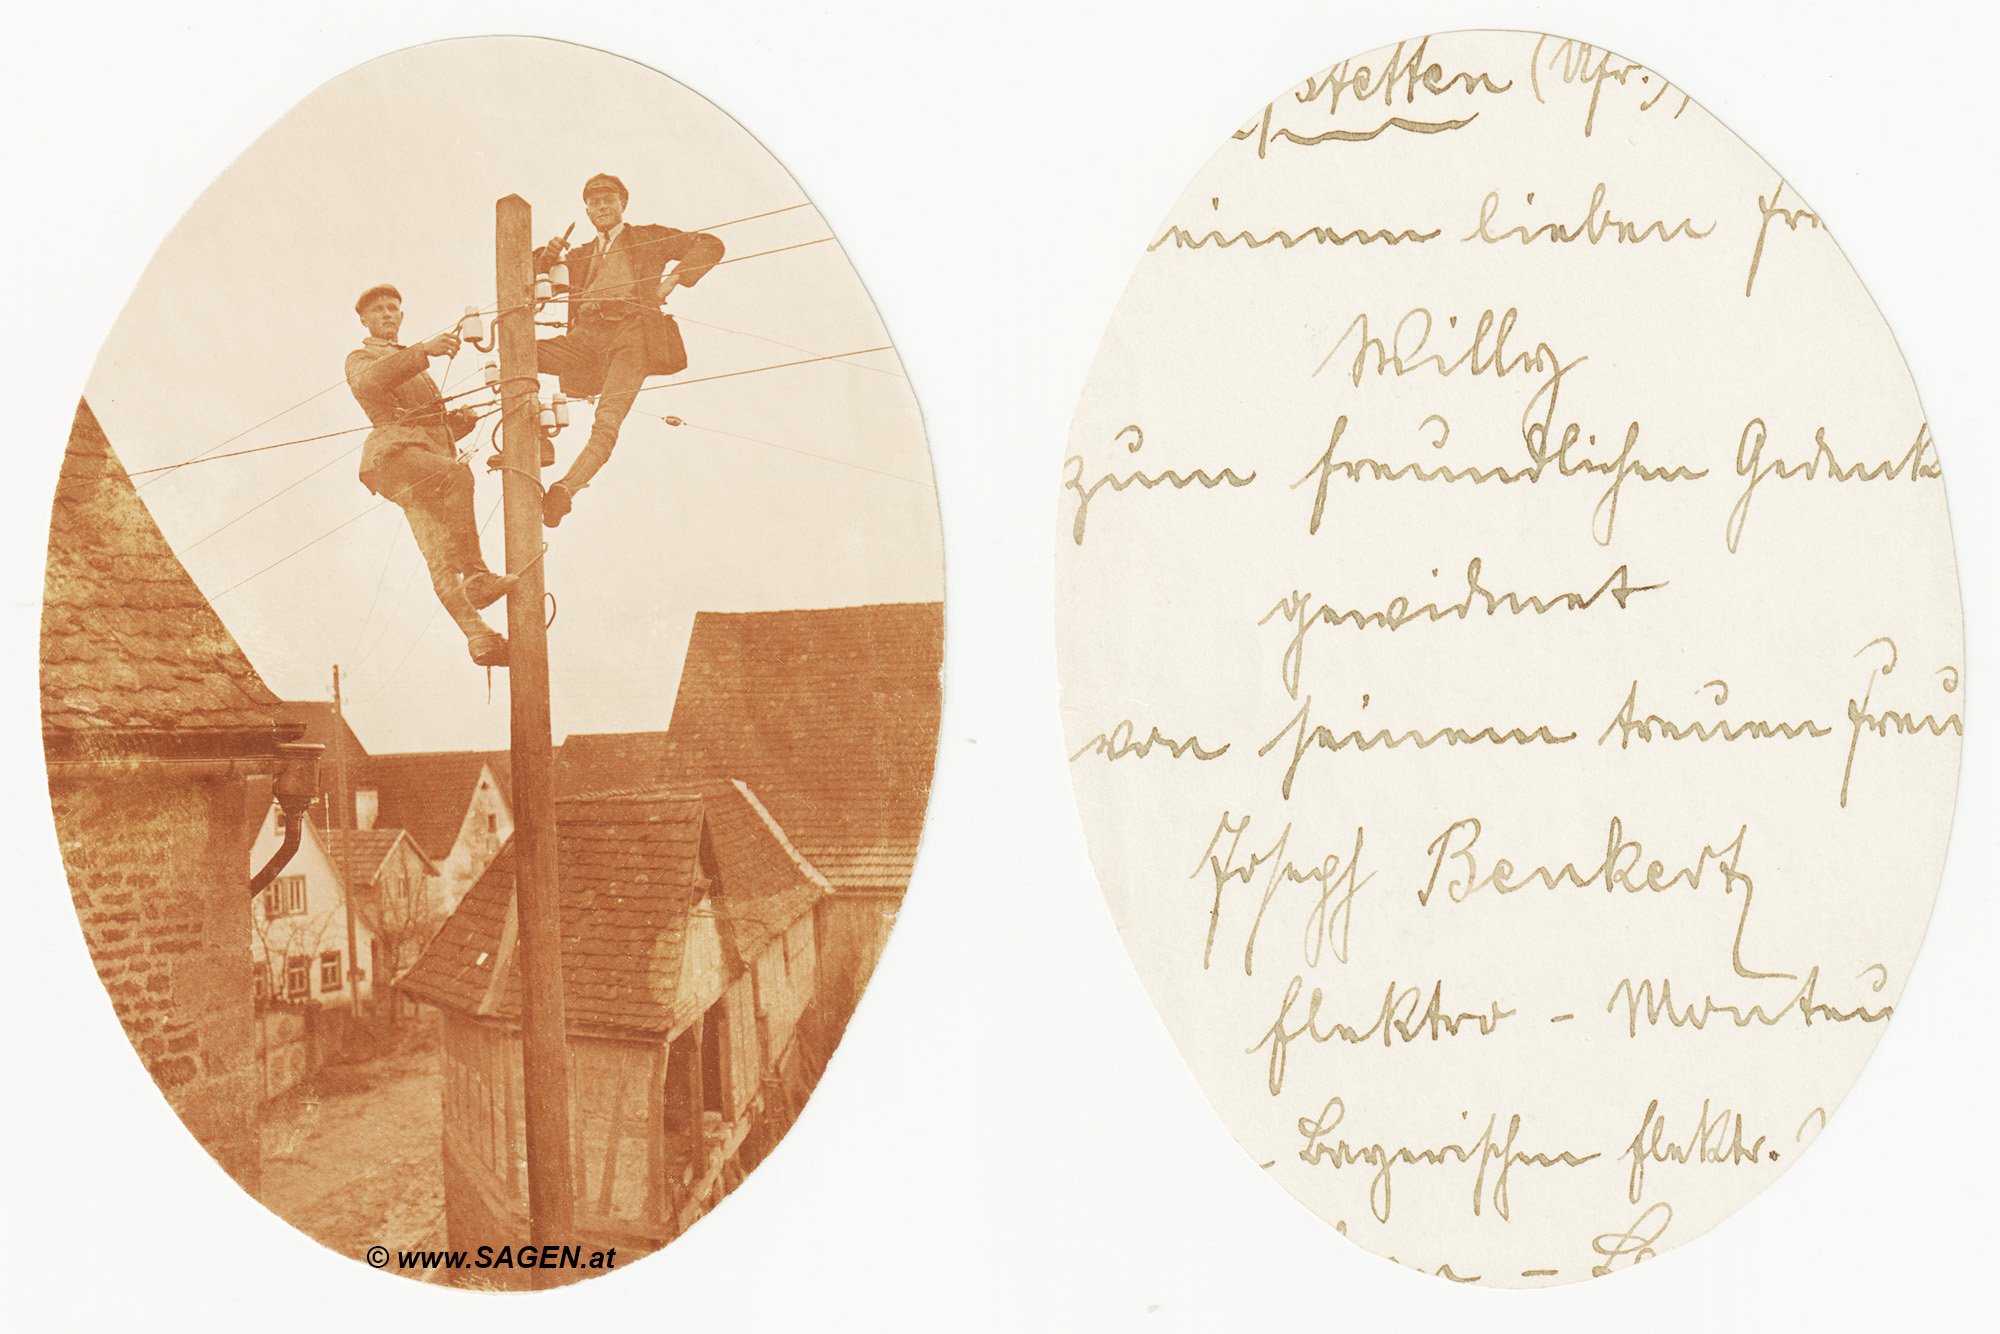 stetten (Ufr.),
einem lieben Fre
Willy
zum freundlichen Gedenk
gewidmet
von seinem treuen Freu
Joseph Benkert
Elektro - Monteu
Bayerischen Elektr.
© www.SAGEN.at